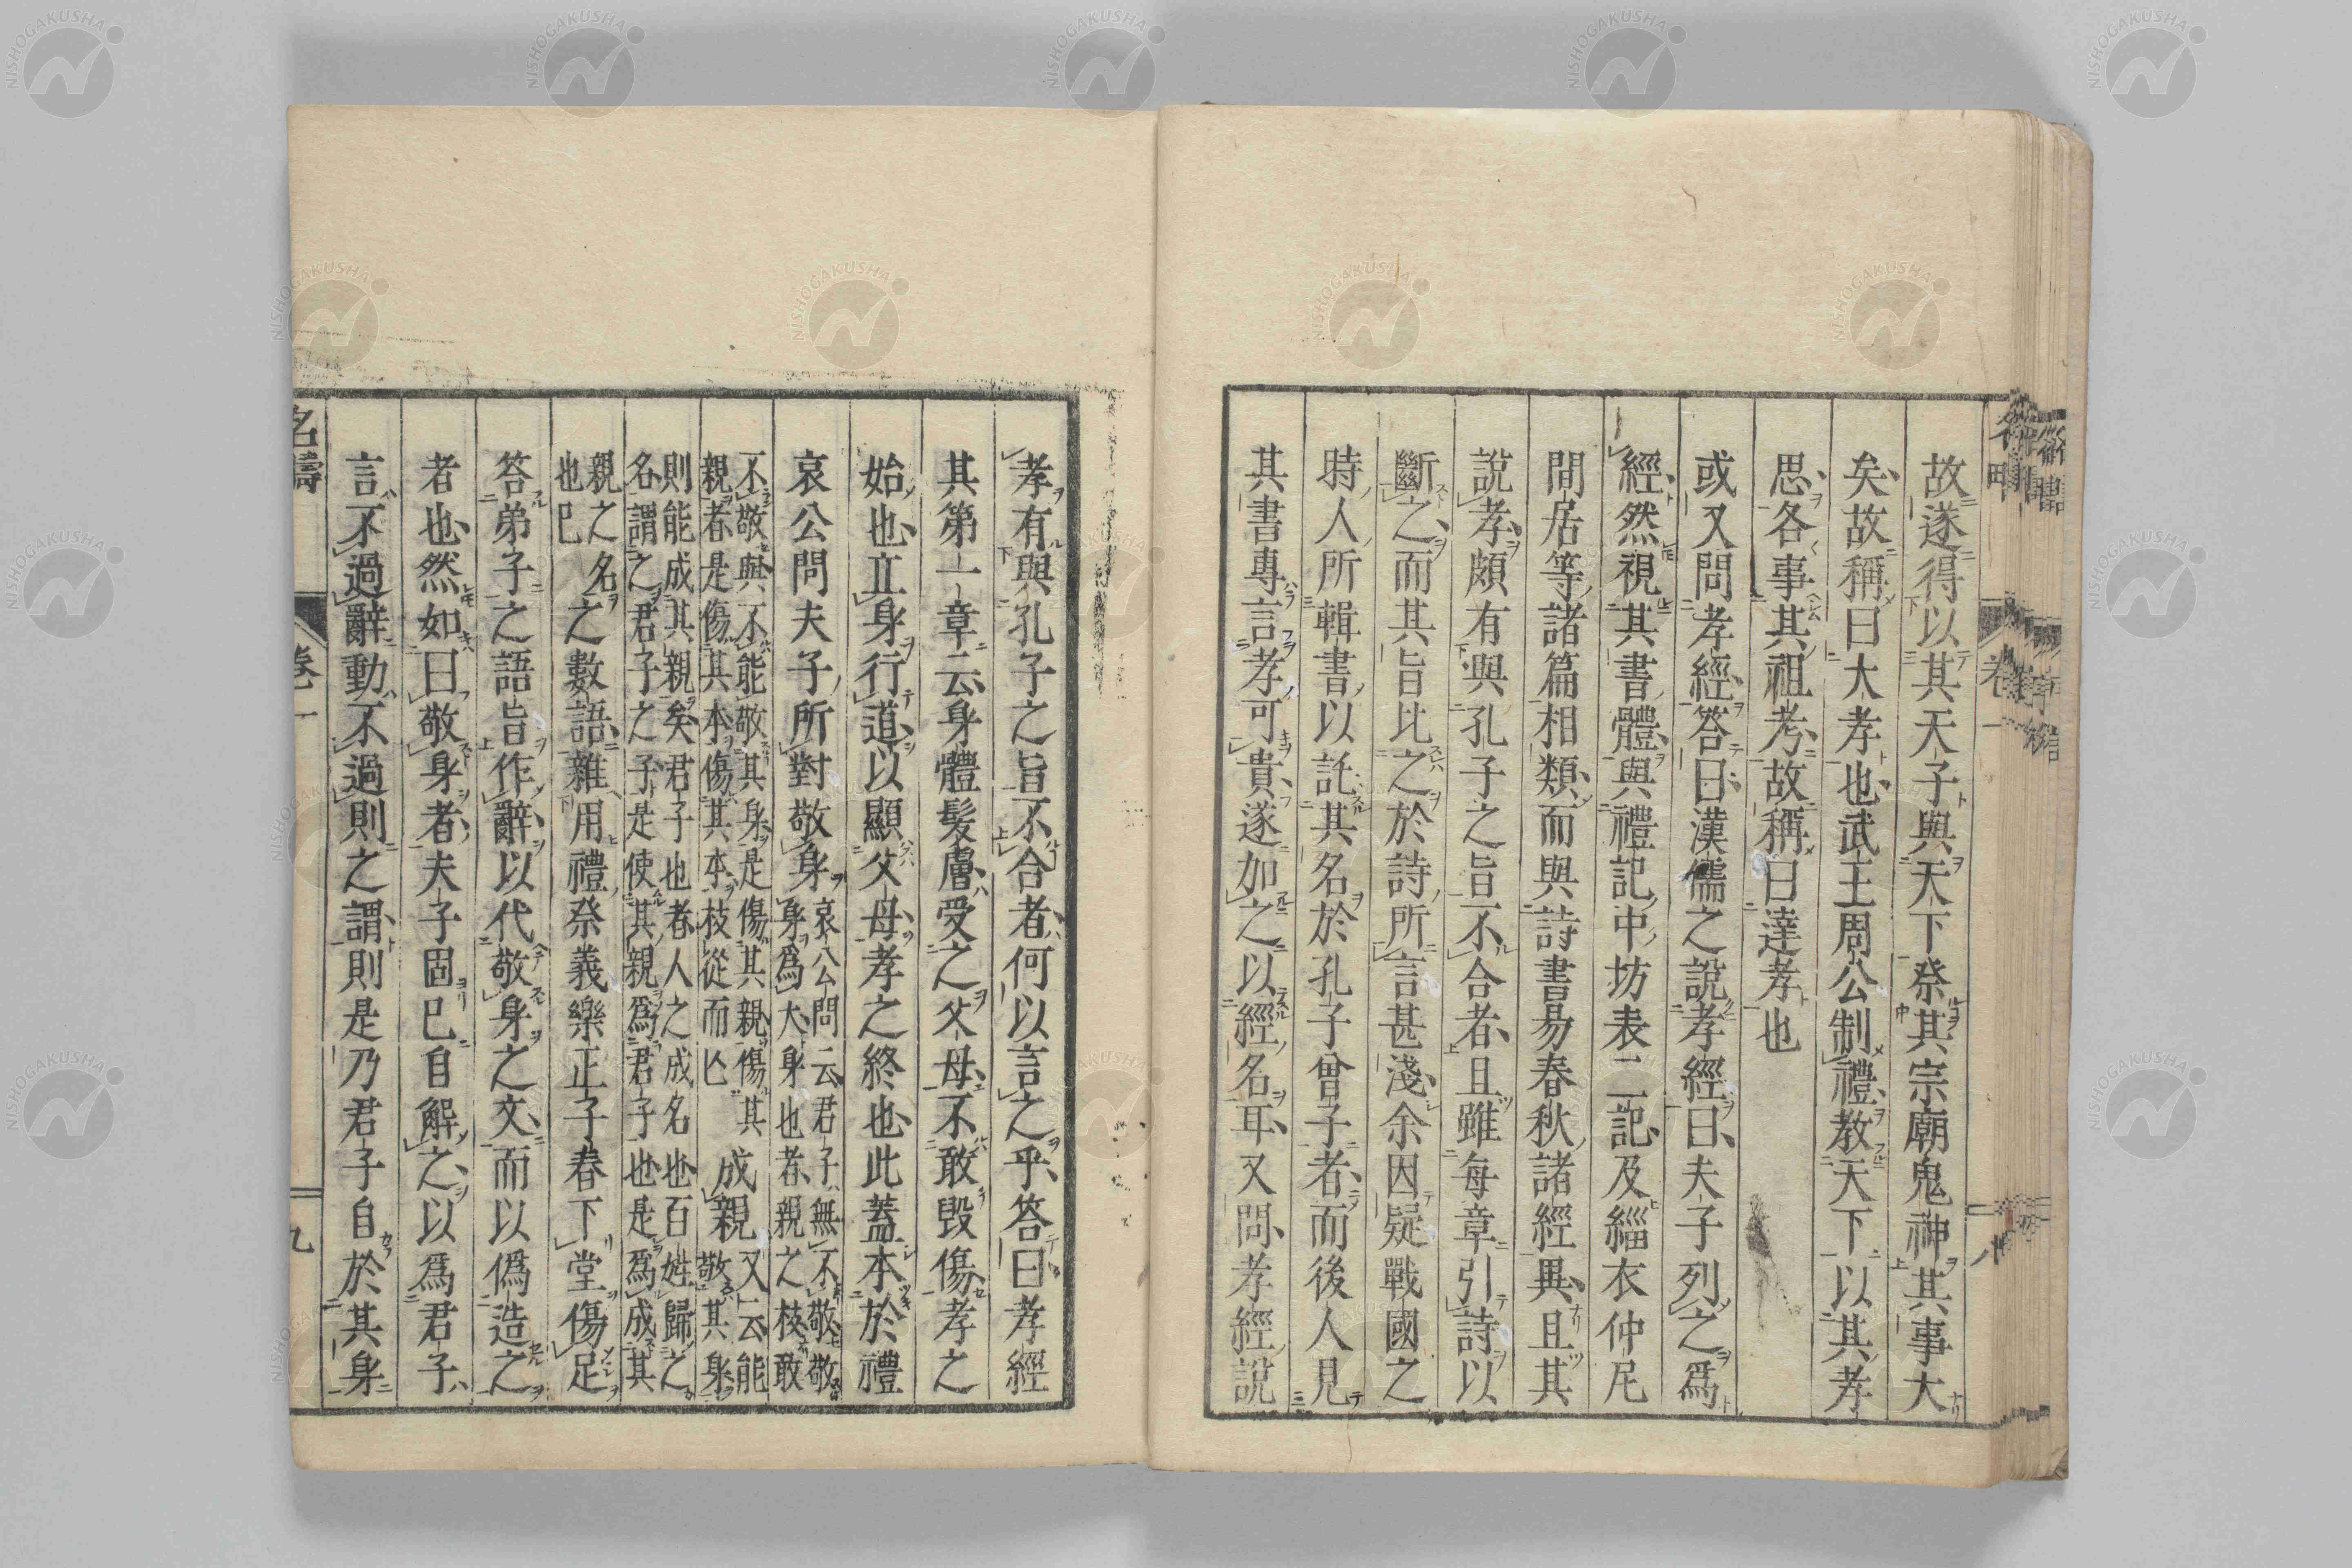 故遂得以其天子與天下祭其宗廟鬼神其事大
矣故稱曰大孝也武王周公制禮教天下以其孝
思各事其祖考故稱曰達孝也
或又問孝經答曰漢儒之說孝經曰夫子列之爲
經然視其書體與禮記中坊表二記及緇衣仲尼
間居等諸篇相類而與詩書易春秋諸經異且其
說孝頗有與孔子之旨不合者且雖每章引詩以
斷之而其旨比之於詩所言甚淺余因疑戰國之
時人所輯書以託其名於孔子曾子者而後人見
其書專言孝可貴遂如之以經名耳又問孝經說
孝有與孔子之旨不合者何以言之乎答曰孝經
其第一章云身體髮膚受之父母不敢毀傷孝之
始也立身行道以顯父母孝之終也此蓋本於禮
哀公問夫子所對敬身
哀公問云君子無不敬敬
身爲大身也者親之枝敢
不敬與不能敬其身是傷其親傷其
親者是傷其本傷其本枝從而亾
成親
又云能
敬其身
則能成其親矣君子也者人之成名也百姓歸之
名謂之君子之子是使其親爲君子也是爲成其
親之名
也已
名之數語雜用禮祭義樂正子春下堂傷足
答弟子之語旨作辭以代敬身之文而以僞造之
者也然如曰敬身者夫子固已自解之以爲君子
言不過辭動不過則之謂則是乃君子自於其身
名疇
卷一
九
NISHOGAKUSHA